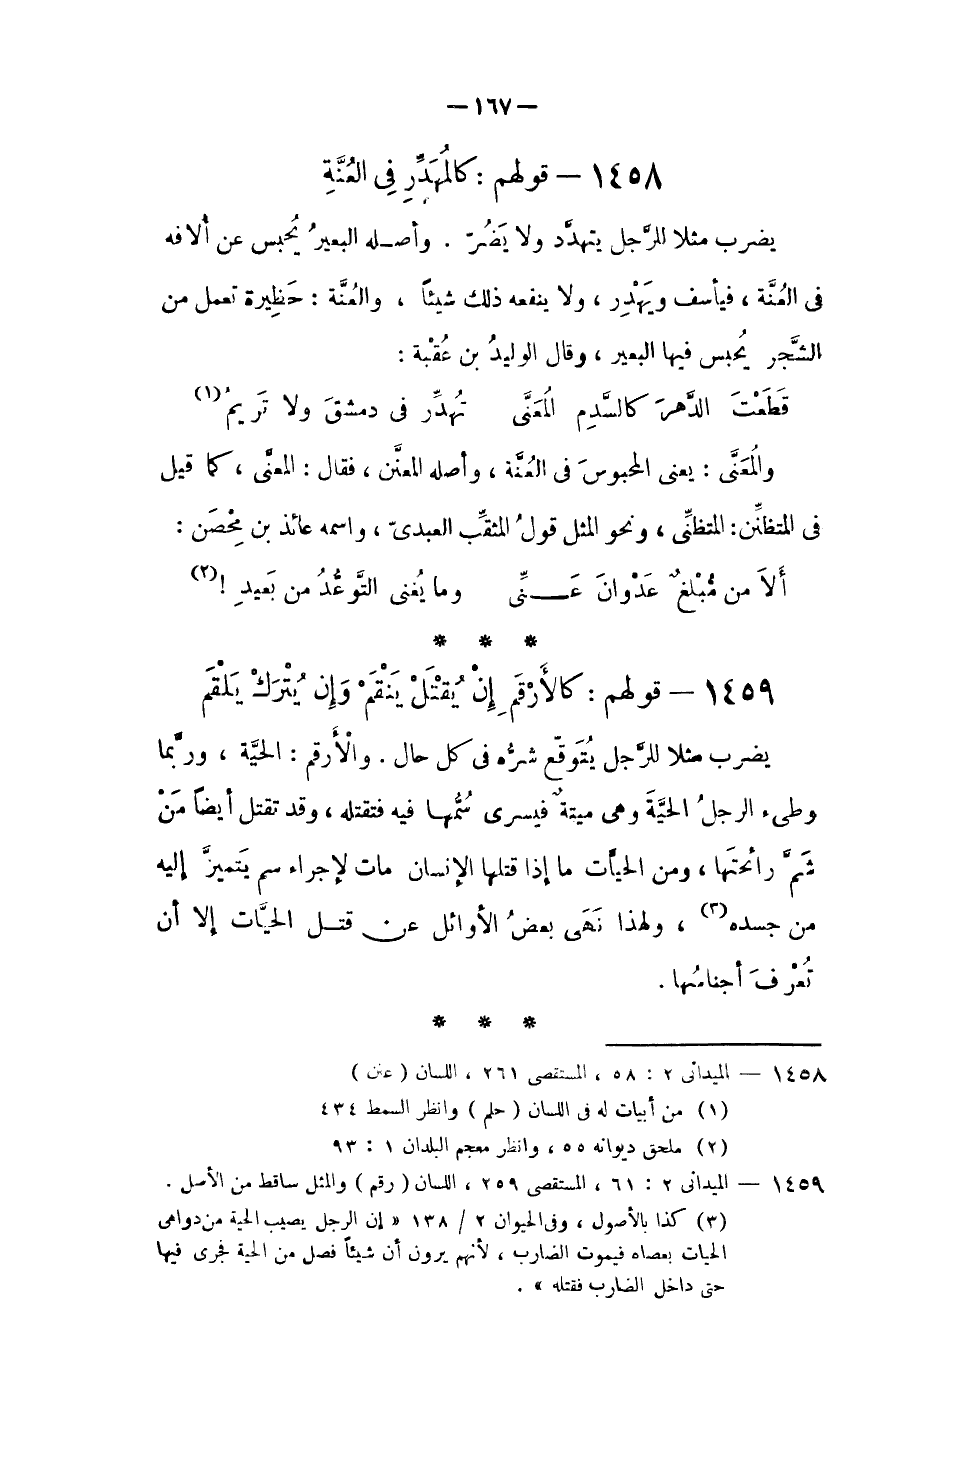 — ١٦٧ —
١٤٥٨ – قولهم : كالمُهَدِّرِ فِى العُنَّةِ
يضرب مثلا للرَّجل يتهدَّد ولا يَضُرّ . وأصله البعيرُ يُحبس عن أُلافه
فى العُنَّة ، فيأسف ويَهْدِر ، ولا ينفعه ذلك شيئاً ، والعُنَّة : حَظِيرة تعمل من
الشَّجر يُحبس فيها البعير ، وقال الوليدُ بن عُقْبة :
قَطَعْتَ الدَّهرَ كالسَّدِمِ المُعَنَّى تُهدِّر فى دمشقَ ولا تَريمُ (١)
والمُعَنَّى : يعنى المحبوسَ فى العُنَّة ، وأصله المعنَّن ، فقال : المعنَّى ، كما قيل
فى المتظنِّن: المتظنِّى ، ونحو المثل قولُ المثقِّب العبدىّ ، واسمه عائذ بن مِحْصَن :
أَلاَ من مُبْلغٌ عَدْوانَ عَـــنِّى وما يُغنى التَّوعُّدُ من بَعيدِ ! (٢)
* * *
١٤٥٩ – قولهم : كالأَرْقَمِ إِنْ يُقْتَلْ يَنْقَمْ وَإِن يُتْرَكْ يَلْقَمْ
يضرب مثلا للرَّجل يُتَوقّع شرُّه فى كل حال . والْأَرقم : الحَيَّة ، وربَّما
وطىء الرجلُ الحَيَّةَ وهى ميتةٌ فيسرى سُمُّها فيه فتقتله ، وقد تقتل أيضاً مَنْ
شَمَّ رائحتَها ، ومن الحيَّات ما إذا قتلها الإنسان مات لإجراء سم يَتميزَّ إليه
من جسده (٣) ، ولهذا نَهَى بعضُ الأوائل عن قتل الحيَّات إلا أن
تُعْرفَ أجناسُها .
* * *
١٤٥٨ — الميدانى ٢ : ٥٨ ، المستقصى ٢٦١ ، اللسان ( عنن )
(١) من أبيات له فى اللسان ( حلم ) وانظر السمط ٤٣٤
(٢) ملحق ديوانه ٥٥ ، وانظر معجم البلدان ١ : ٩٣
١٤٥٩ — الميدانى ٢ : ٦١ ، المستقصى ٢٥٩ ، اللسان ( رقم ) والمثل ساقط من الأصل .
(٣) كذا بالأصول ، وفى الحيوان ٢ / ١٣٨ « إن الرجل يصيب الحية من دواهى
الحيات بعصاه فيموت الضارب ، لأنهم يرون أن شيئاً فصل من الحية فجرى فيها
حتى داخل الضارب فقتله » .